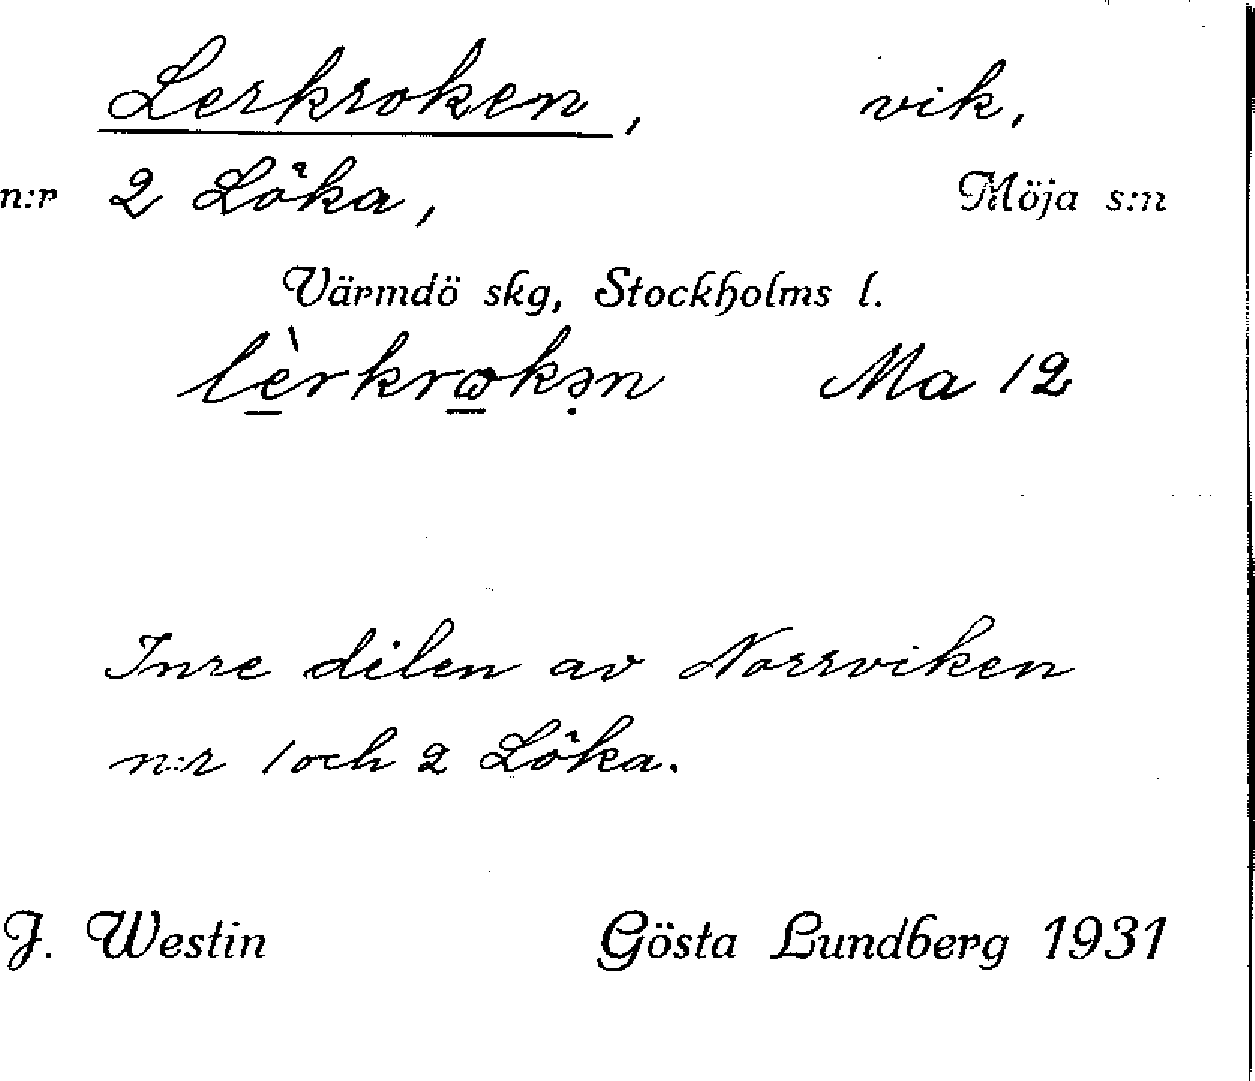 Lerkroken, vik,
n:r 2 Löka, Möja s:n
Värmdö skg, Stockholms l.
lèrkrωkən Ma 12
Inre delen av Norrviken
n:r 1 och 2 Löka.
J. Westin Gösta Lundberg 1931